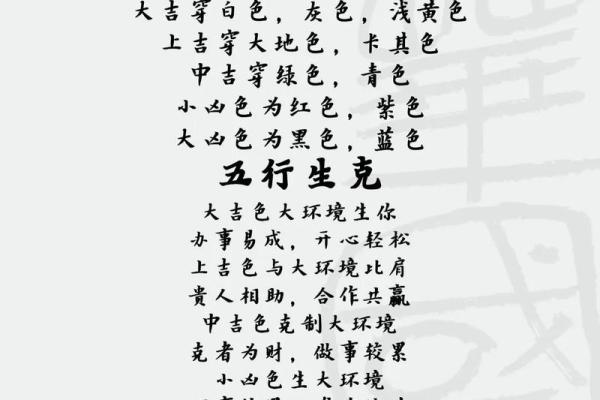 大吉穿白色，灰色，浅黄色
上吉穿大地色，卡其色
中吉穿绿色，青色
小凶色为红色，紫色
大凶色为黑色，蓝色
五行生克
大吉色大环境生你
办事易成，开心轻松
上吉色与大环境比肩
貴人相助，合作共赢
中吉色克制大环境
克者为财，做事较累
小凶色生大环境